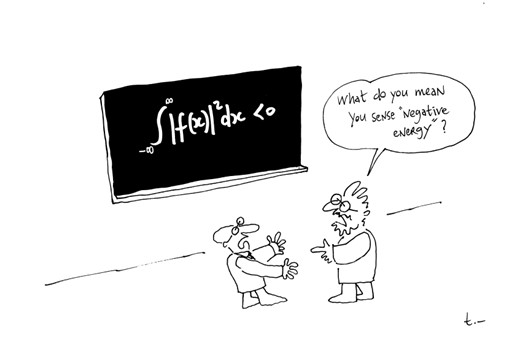 ∫_{-∞}^{∞} |f(x)|² dx < 0
What do you mean
you sense "negative
energy"?
t.–